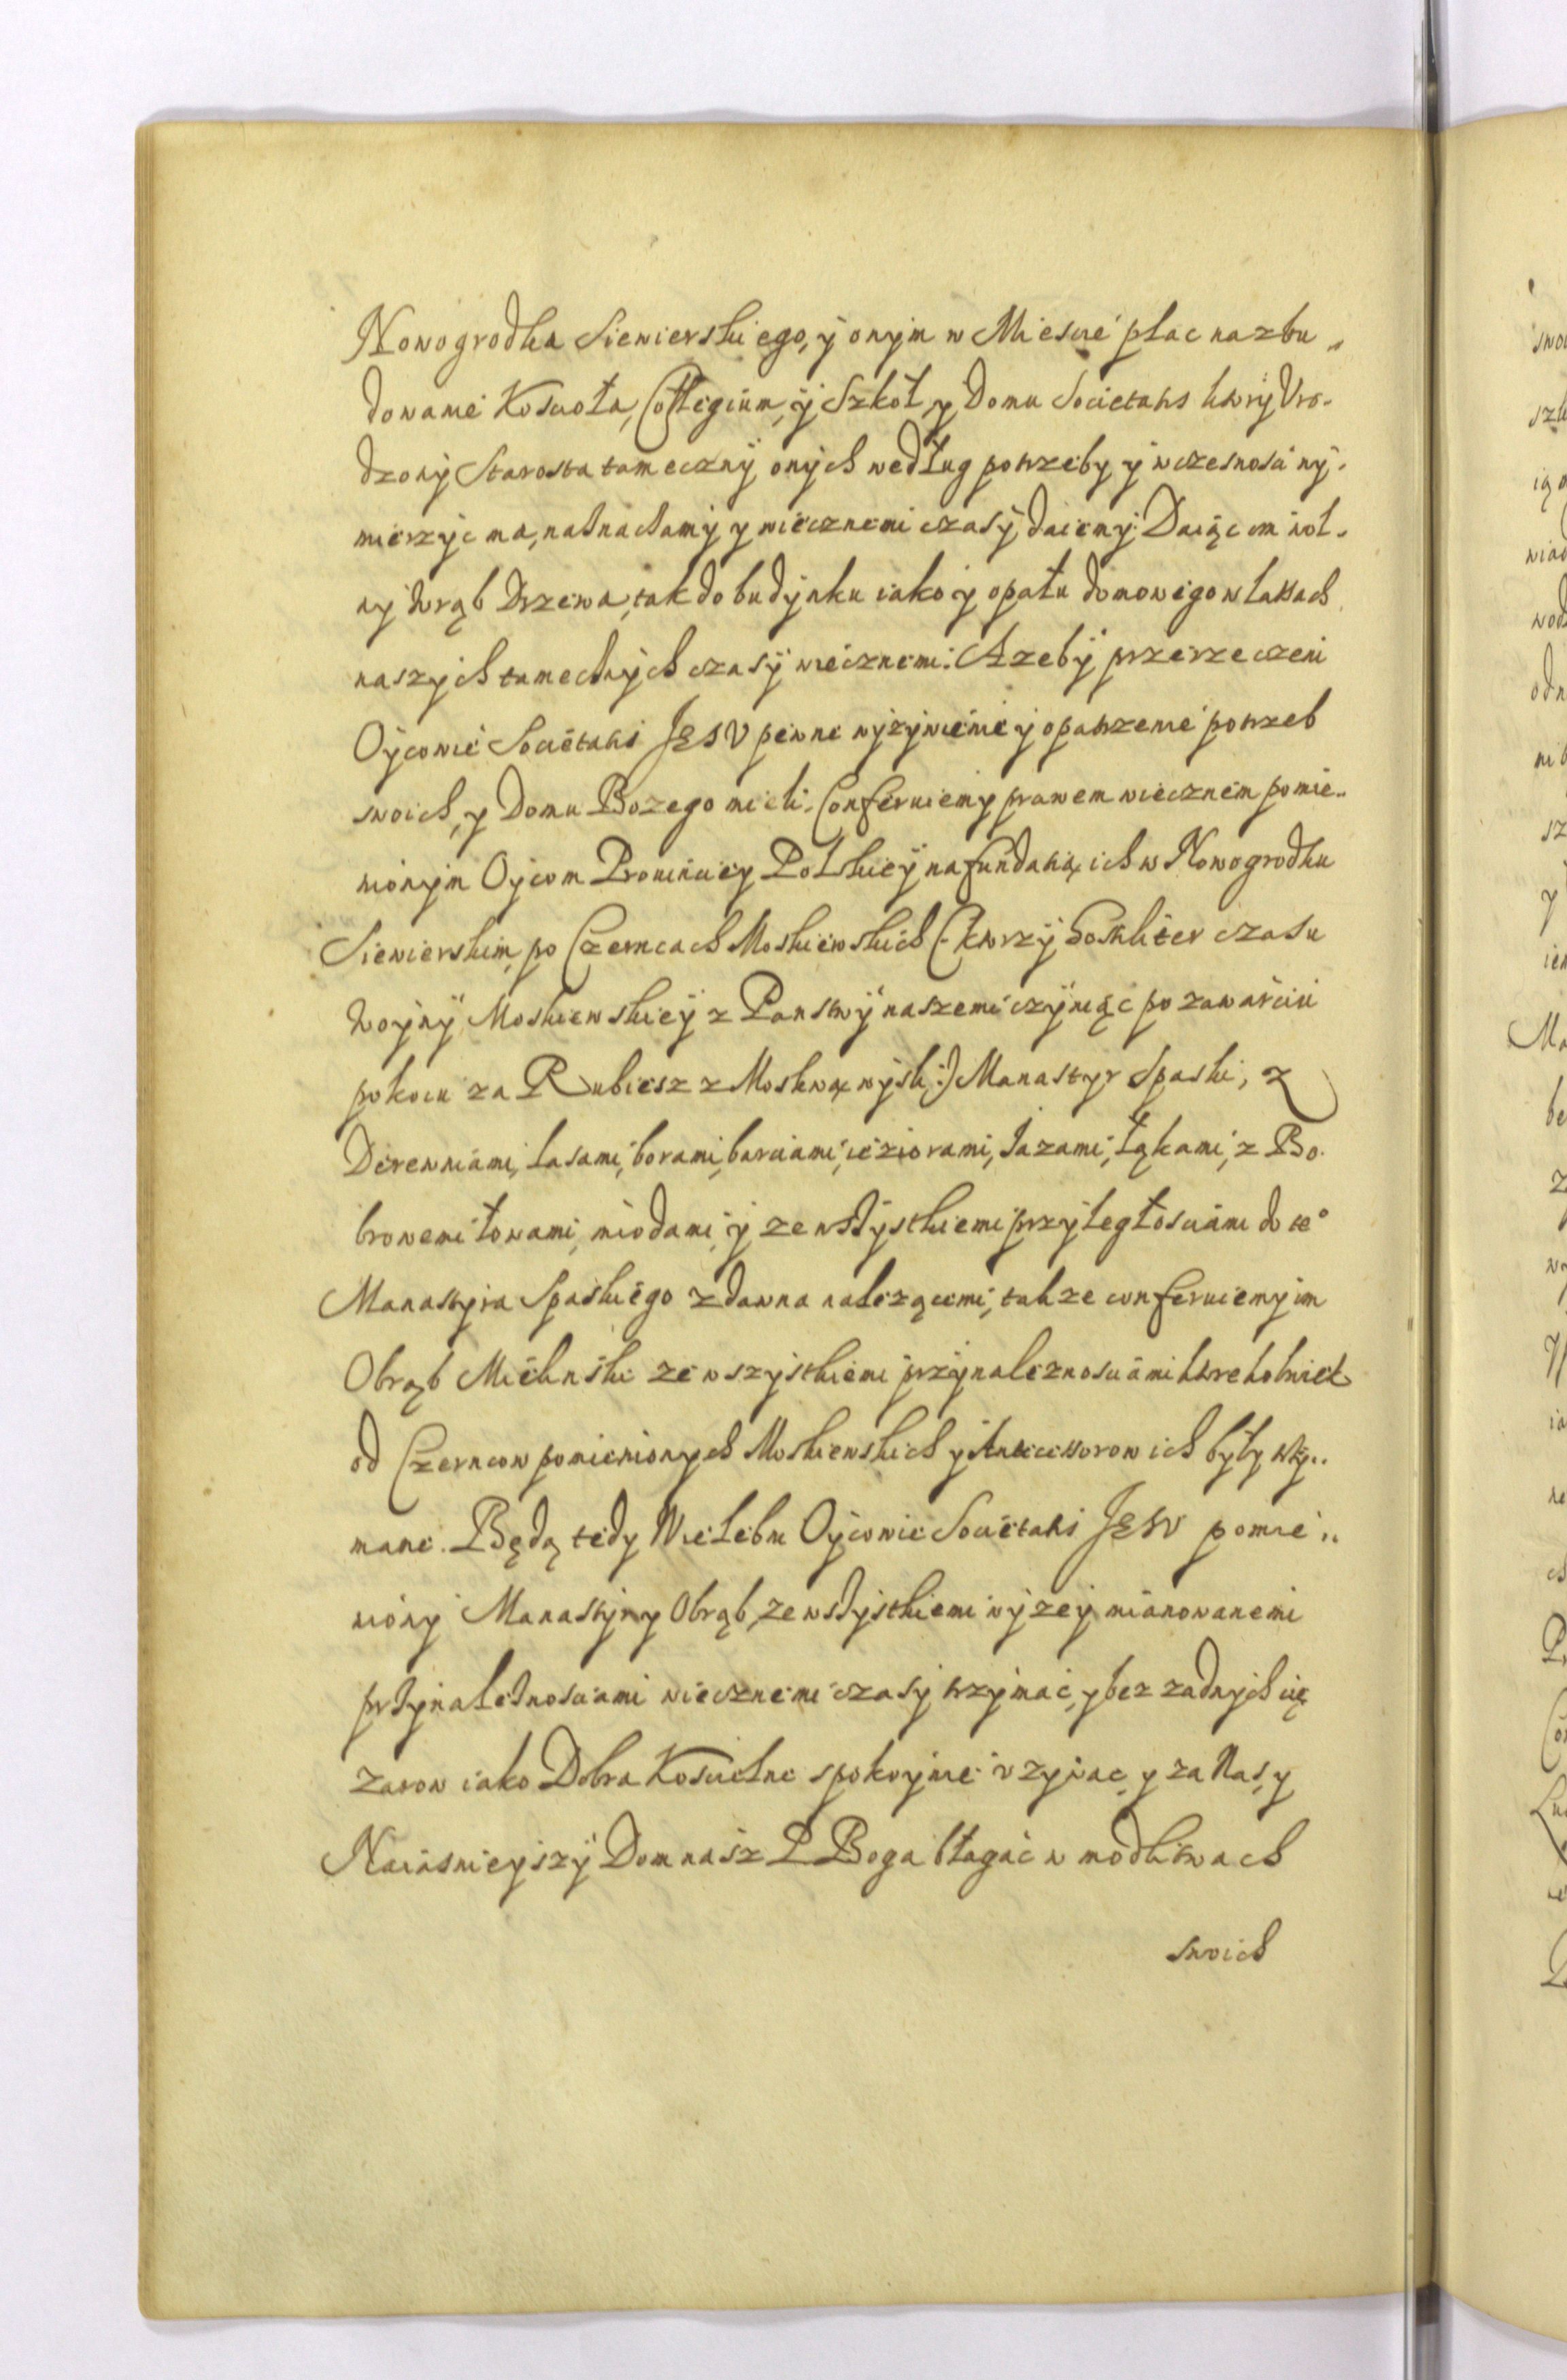 Nowogrodka Siewierskiego, y onym w Miescie plac na zbu„
dowanie Koscioła, Collegium, y Szkoł, y Domu Societatis ktory Vro-
dzony Starosta tameczny onych według potrzeby y wczesnosci wy-
mierzyc ma, naznaczamy y wiecznemi czasy daiemy. Daiąc im wol-
ny wrąb Drzewa, tak do budynku iako y opału domowego w Lassach
naszych tamecznych czasy wiecznemi. A zeby przerzeczeni
Oycowie Societatis JESV pewne wyzywienie y opatrzenie potrzeb
swoich, y Domu Bozego mieli, Conferuiemy prawem wiecznem pomie„
nionym Oycom Prowincyey Polskiey na fundatią ich w Nowogrodku
Siewierskim, po Czerncach Moskiewskich (ktorzy hostiliter czasu
Woyny Moskiewskiey z Panstwy naszemi czyniąc po zawarciu
pokoiu za Rubiesz z Moskwą wyszli:) Manastyr Spaski, z
Derewniami, Lasami, borami, barciami, ieziorami, Jazami, Łąkami, z Bo-
browemi łowami, miodami, y ze wszystkiemi przyległosciami do te°
Manastyra Spaskiego zdawna nalezącemi, takze conferuiemy im
Obrąb ze wszystkiemi przynaleznosciami ktore kolwiek
od Czerncow pomienionych Moskiewskich y Antecessorow ich były trzy„
mane. Będą tedy Wielebni Oycowie Societatis JESV pomie„
niony Manastyr y Obrąb, ze wszystkiemi wyzey mianowanemi
przynaleznosciami wiecznemi czasy trzymac, y bez zadnych cię
zarow iako Dobra Koscielne spokoynie vzywac, y za Nas, y
Naiasnieyszy Dom nasz P. Boga błagac w modlitwach
swoich